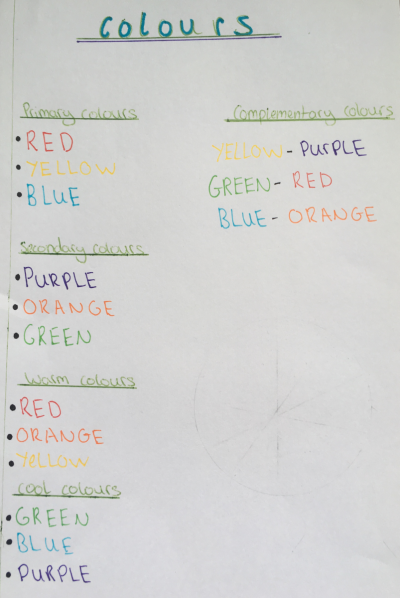 colours
Primary colours
• RED
• YELLOW
• BLUE
Secondary colours
• PURPLE
• ORANGE
• GREEN
Warm colours
• RED
• ORANGE
• YELLOW
cool colours
• GREEN
• BLUE
• PURPLE
Complementary colours
YELLOW - PURPLE
GREEN - RED
BLUE - ORANGE